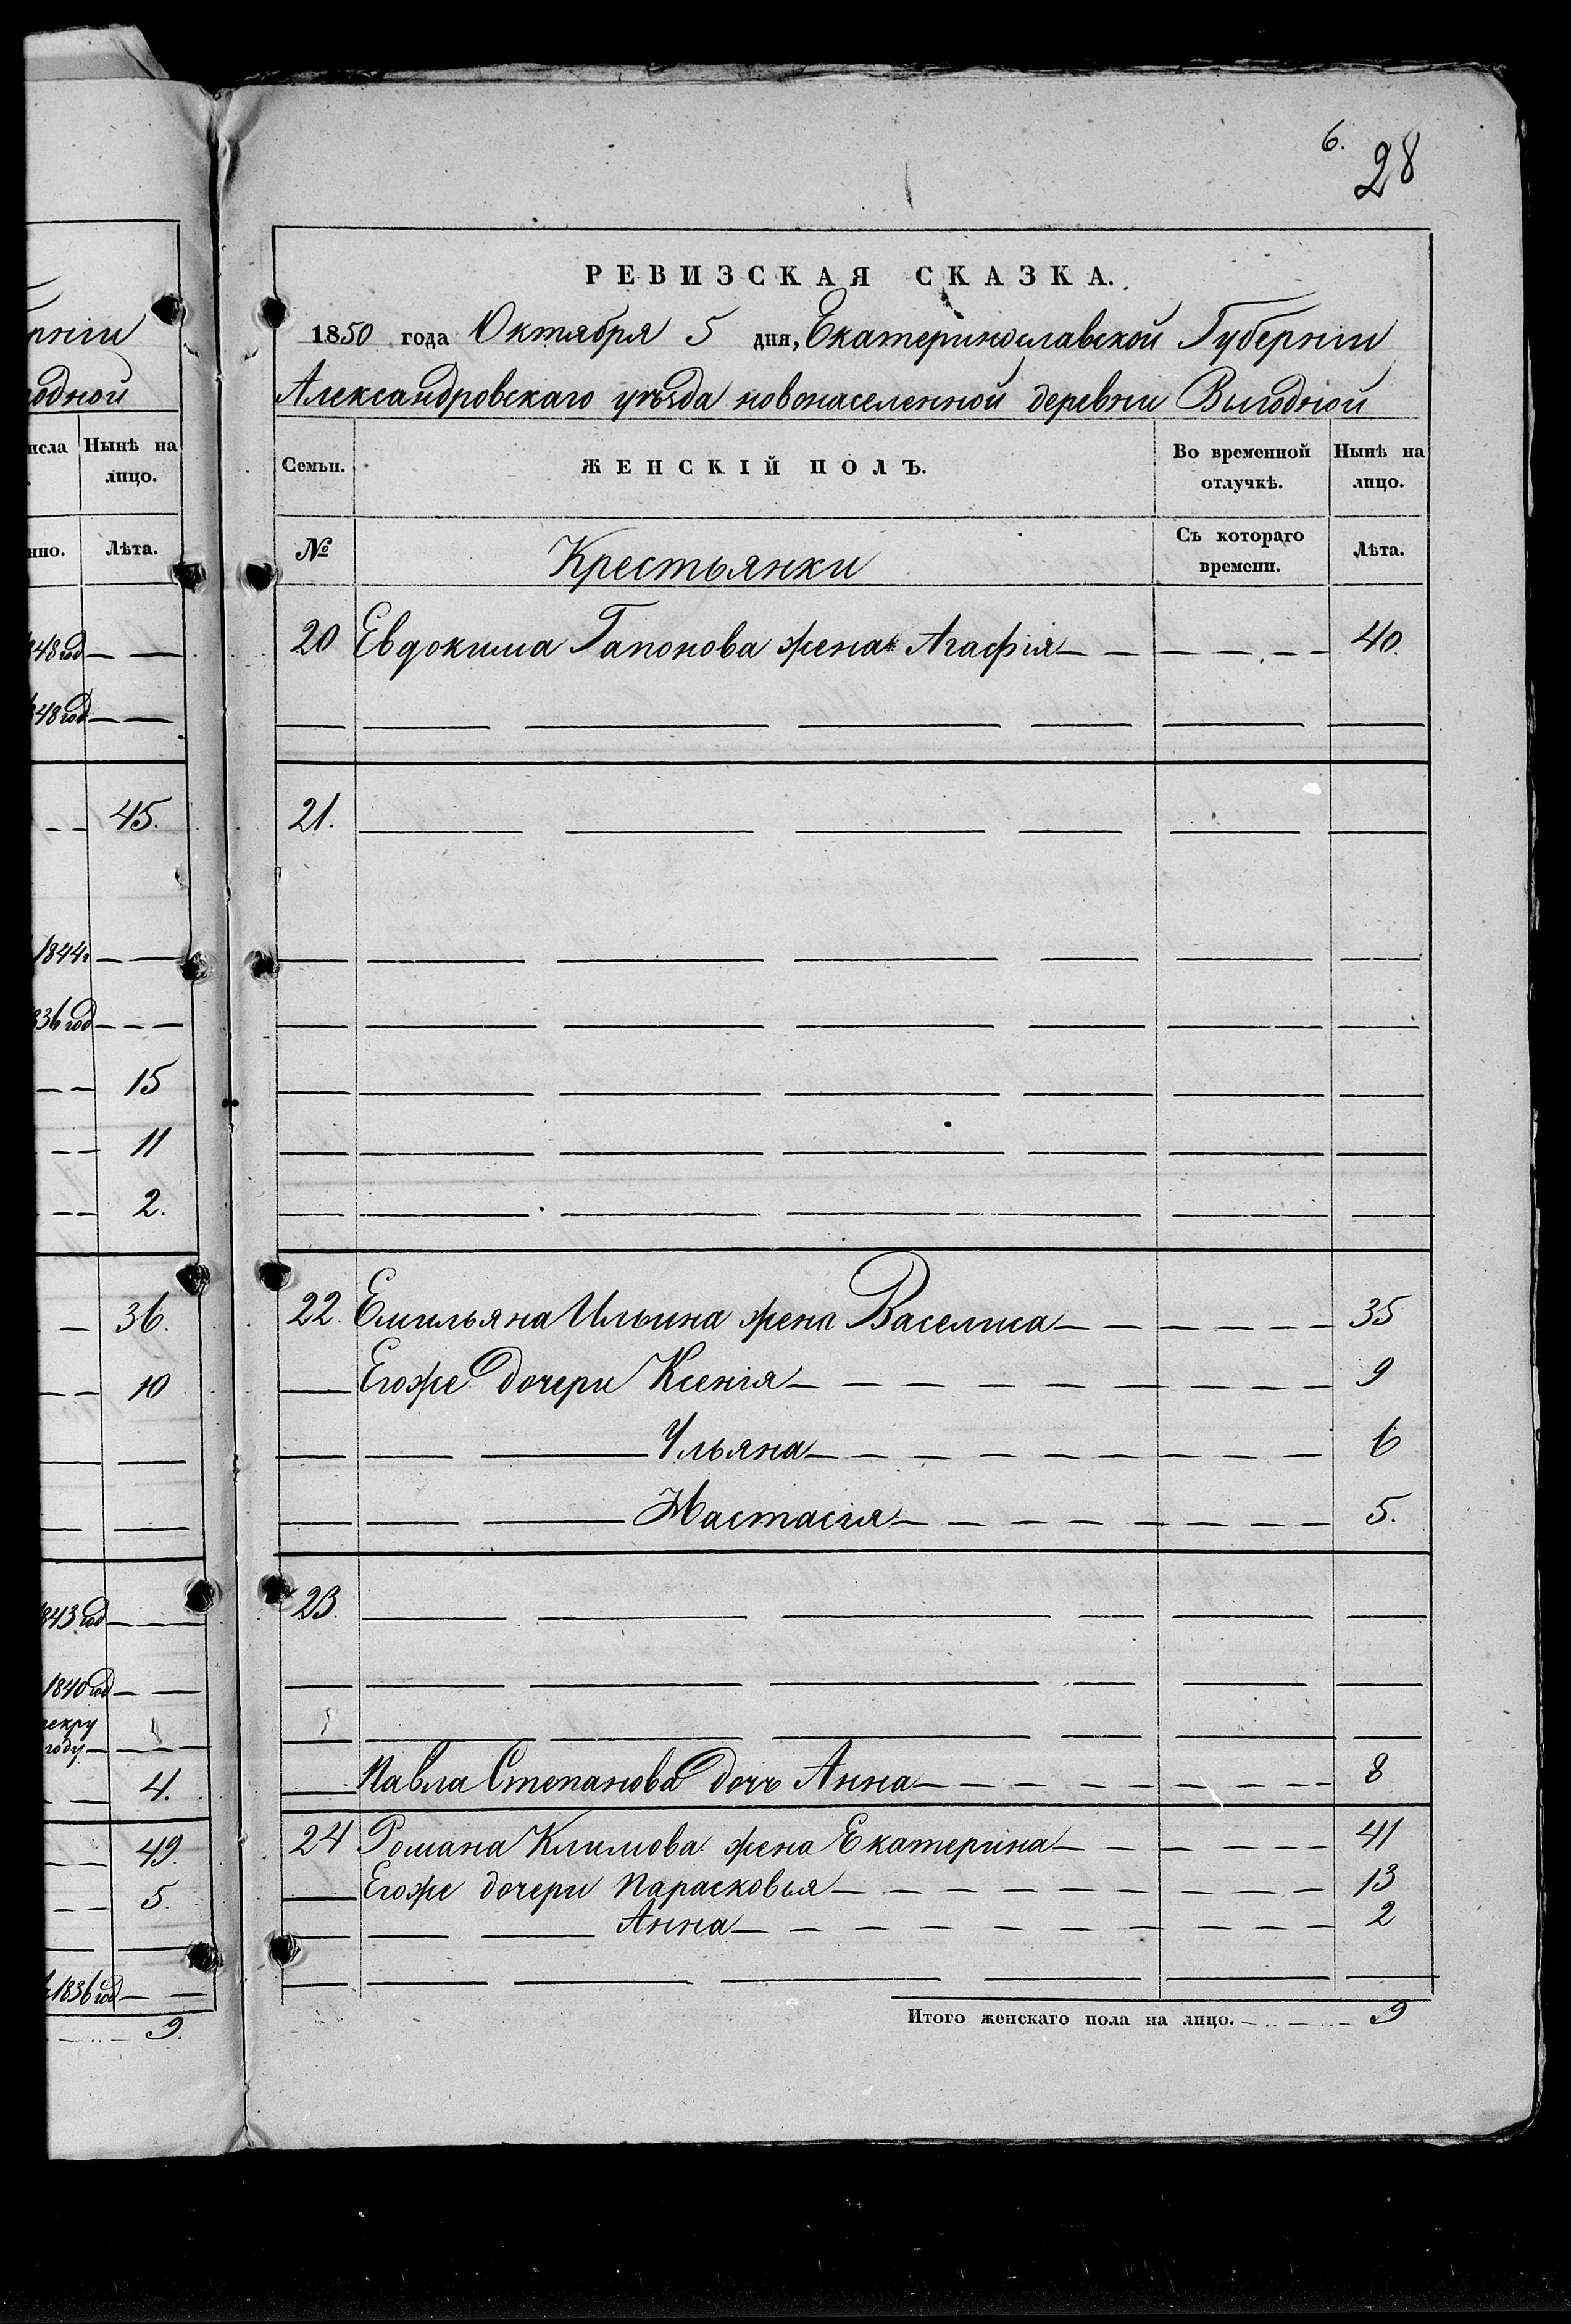 6.
28
рніи
годной
исла
Нынѣ на
лицо.
нно.
Лѣта.
848 год
848 год
45.
1844г
836 год
15
11
2.
36.
10
1843 год
1840 год
рекру
году
4.
49.
5.
1836 год
9.
РЕВИЗСКАЯ СКАЗКА.
1850 года Октября 5 дня, Екатеринославской Губерніи
Александровскаго уѣзда новонаселенной деревни Выгодной
Семьи.
ЖЕНСКІЙ ПОЛЪ.
Во временной
отлучкѣ.
Нынѣ на
лицо.
№
Крестьянки
Съ котораго
времени.
Лѣта.
20 Евдокима Гапонова жена Агафія 40.
21.
22. Емильяна Ильина жена Васелиса 35
Егоже дочери Ксенія 9
Ульяна 6
Настасія 5.
23.
Павла Степанова дочь Анна 8
24 Романа Климова жена Екатерина 41
Егоже дочери Парасковья 13
Анна 2
Итого женскаго пола на лицо. 9